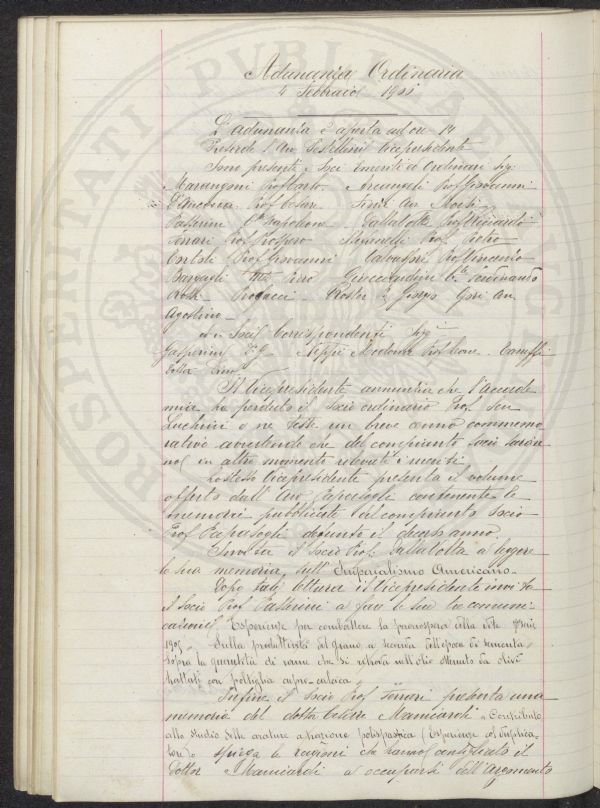 Adunanza Ordinaria
4 Febbraio 1905
L'adunanza è aperta ad ore 14
Presiede l'Avv Pestellini Vicepresidente
Sono presenti i Soci Emeriti ed Ordinari Sigg:
Marangoni Prof Carlo Arcangeli Prof Giovanni
D'Ancona Prof Cesare Avv
Passerini C.te Napoleone Dalla Volta Prof Riccardo
Ferrari Prof Prospero Stefanelli Prof. Pietro
Prof Giovanni Valvassori Prof Vincenzo
Bargagli Piero Guicciardini C.te Ferdinando
Roster Gori Avv.
Agostino
e i Soci Corrispondenti Sigg
Gasperini Modona Prof Leone
Dottor
Il Vicepresidente annunzia che l'Accade
mia ha perduto il Socio ordinario Prof. Sen
Luchini e ne tesse un breve cenno commemo
rativo avvertendo che del compianto socio saran
no in altro momento rilevati i meriti
Lo stesso Vicepresidente presenta il volume
offerto dall' Avv Papasogli contenente le
memorie pubblicate dal compianto Socio
Prof Papasogli defunto il decorso anno.
Invita il Socio Prof: Dalla Volta a leggere
la sua memoria sull'Imperialismo Americano.
Dopo tale lettura il Vicepresidente invita
il Socio Prof Passerini a fare le sue tre comuni
cazioni "Esperienze per combattere la peronospora della vite
Sulla produttività del grano a seconda dell'epoca di sementa,
sopra la quantità di rame che si ritrova nell'olio ottenuto da olive
trattate con poltiglia cupro-calcica"
Infine il Socio Prof Ferrari presenta una
memoria del dottor Mamiaroli "Contributo
allo studio delle arature a trazione polispastica (Esperienze col duplica
tore)" e spiega le ragioni che hanno consigliato il
Dottor Mamiaroli ad occuparsi dell'argomento